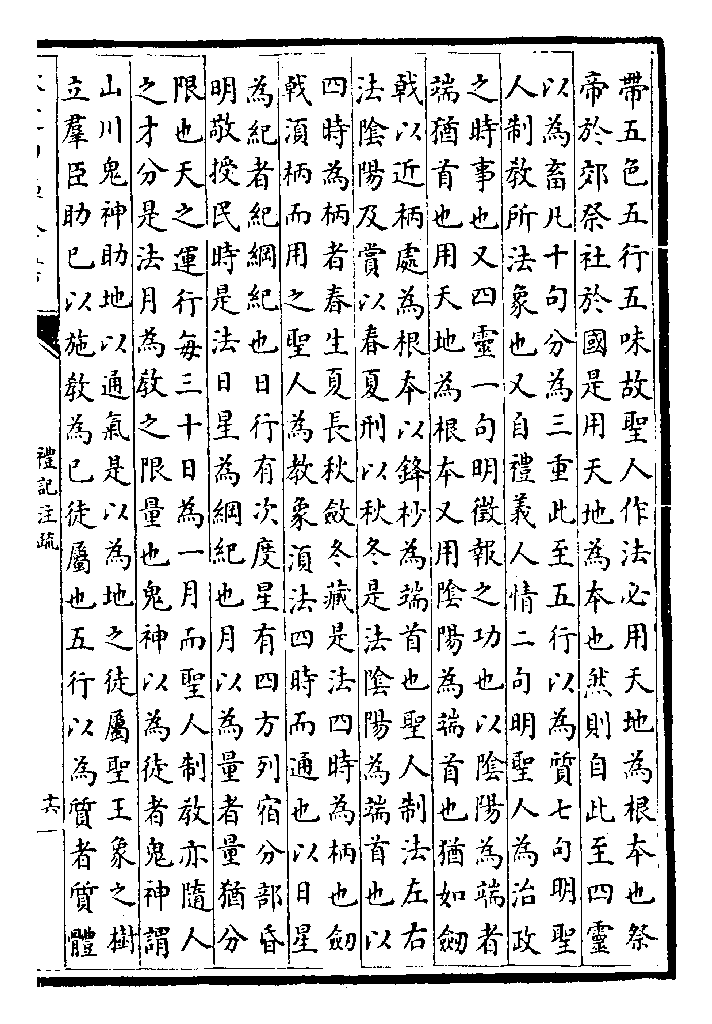 帶五色五行五味故聖人作法必用天地為根本也祭
帝於郊祭社於國是用天地為本也然則自此至四靈
以為畜凡十句分為三重此至五行以為質七句明聖
人制教所法象也又自禮義人情二句明聖人為治政
之時事也又四靈一句明徵報之功也以陰陽為端者
端猶首也用天地為根本又用陰陽為端首也猶如劒
戟以近柄處為根本以鋒杪為端首也聖人制法左右
法陰陽及賞以春夏刑以秋冬是法陰陽為端首也以
四時為柄者春生夏長秋斂冬藏是法四時為柄也劒
戟須柄而用之聖人為教象須法四時而通也以日星
為紀者紀綱紀也日行有次度星有四方列宿分部昏
明敬授民時是法日星為綱紀也月以為量者量猶分
限也天之運行每三十日為一月而聖人制教亦隨人
之才分是法月為教之限量也鬼神以為徒者鬼神謂
山川鬼神助地以通氣是以為地之徒屬聖王象之樹
立羣臣助已以施教為已徒屬也五行以為質者質體
禮記注疏
十六